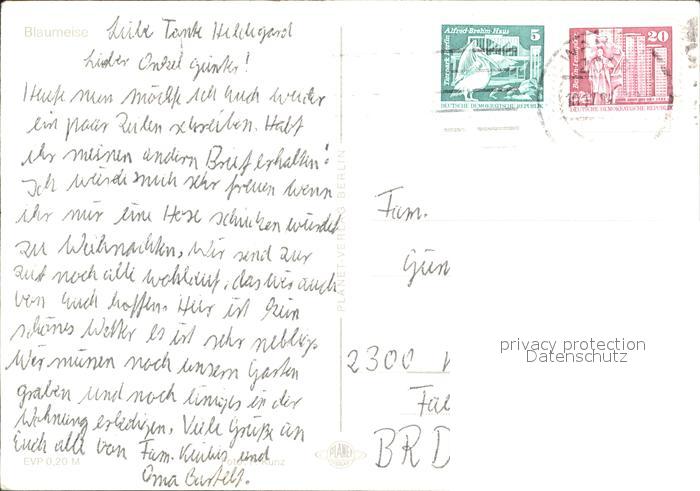 Blaumeise
Liebe Tante Hildegard
Lieber Onkel Günter!
Heute nun möchte ich Euch wieder
ein paar Zeilen schreiben. Habt
ihr meinen andern Brief erhalten?
Ich würde mich sehr freuen wenn
ihr mir eine Hose schicken würdet
zu Weihnachten. Wir sind zur
Zeit noch alle wohlauf, das wir auch
von Euch hoffen. Hier ist kein
schönes Wetter es ist sehr neblig.
Wir müssen noch unsern Garten
graben und noch einiges in der
Wohnung erledigen. Viele Grüße an
Euch alle von Fam. und
Oma Bartelt.
EVP 0,20 M
Foto: Kunz
PLANET-VERLAG BERLIN
PLANET
Tierpark Berlin
Alfred-Brehm-Haus
5
DEUTSCHE DEMOKRATISCHE REPUBLIK
20
DEUTSCHE DEMOKRATISCHE REPUBLIK
Fam.
Gün
2300
BRD
privacy protection
Datenschutz